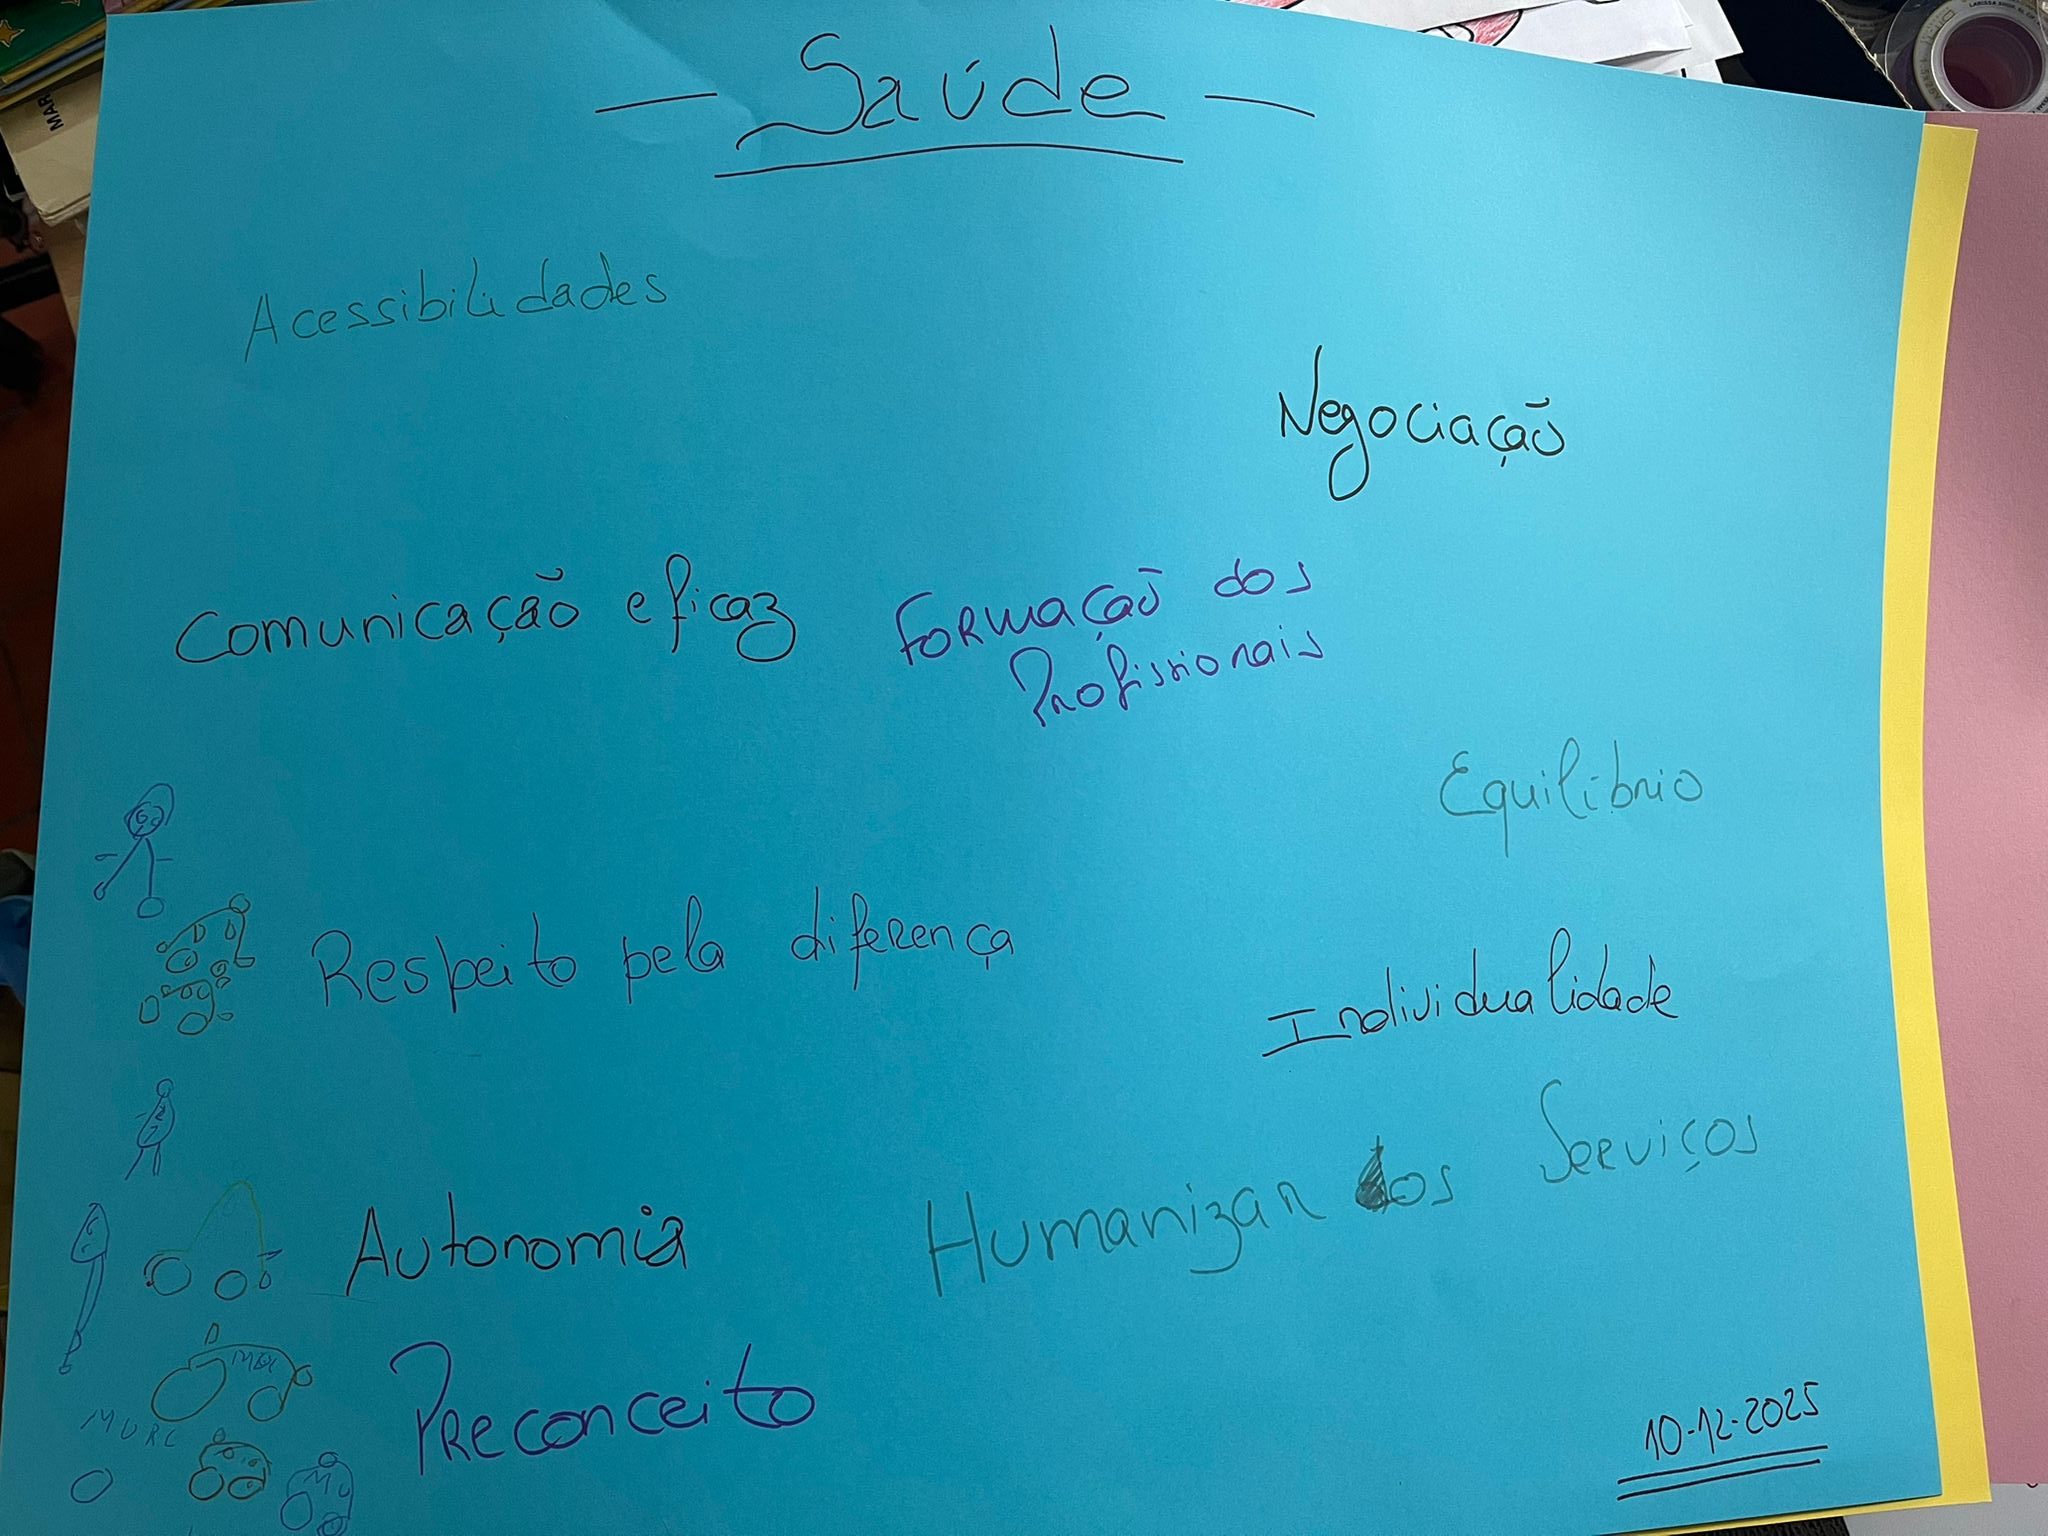 — Saúde —
Acessibilidades
Negociação
Comunicação eficaz
Formação dos
Profissionais
Equilíbrio
Respeito pela diferença
Individualidade
Humanizar os Serviços
Autonomia
Preconceito
MURC
10-12-2025
MAR